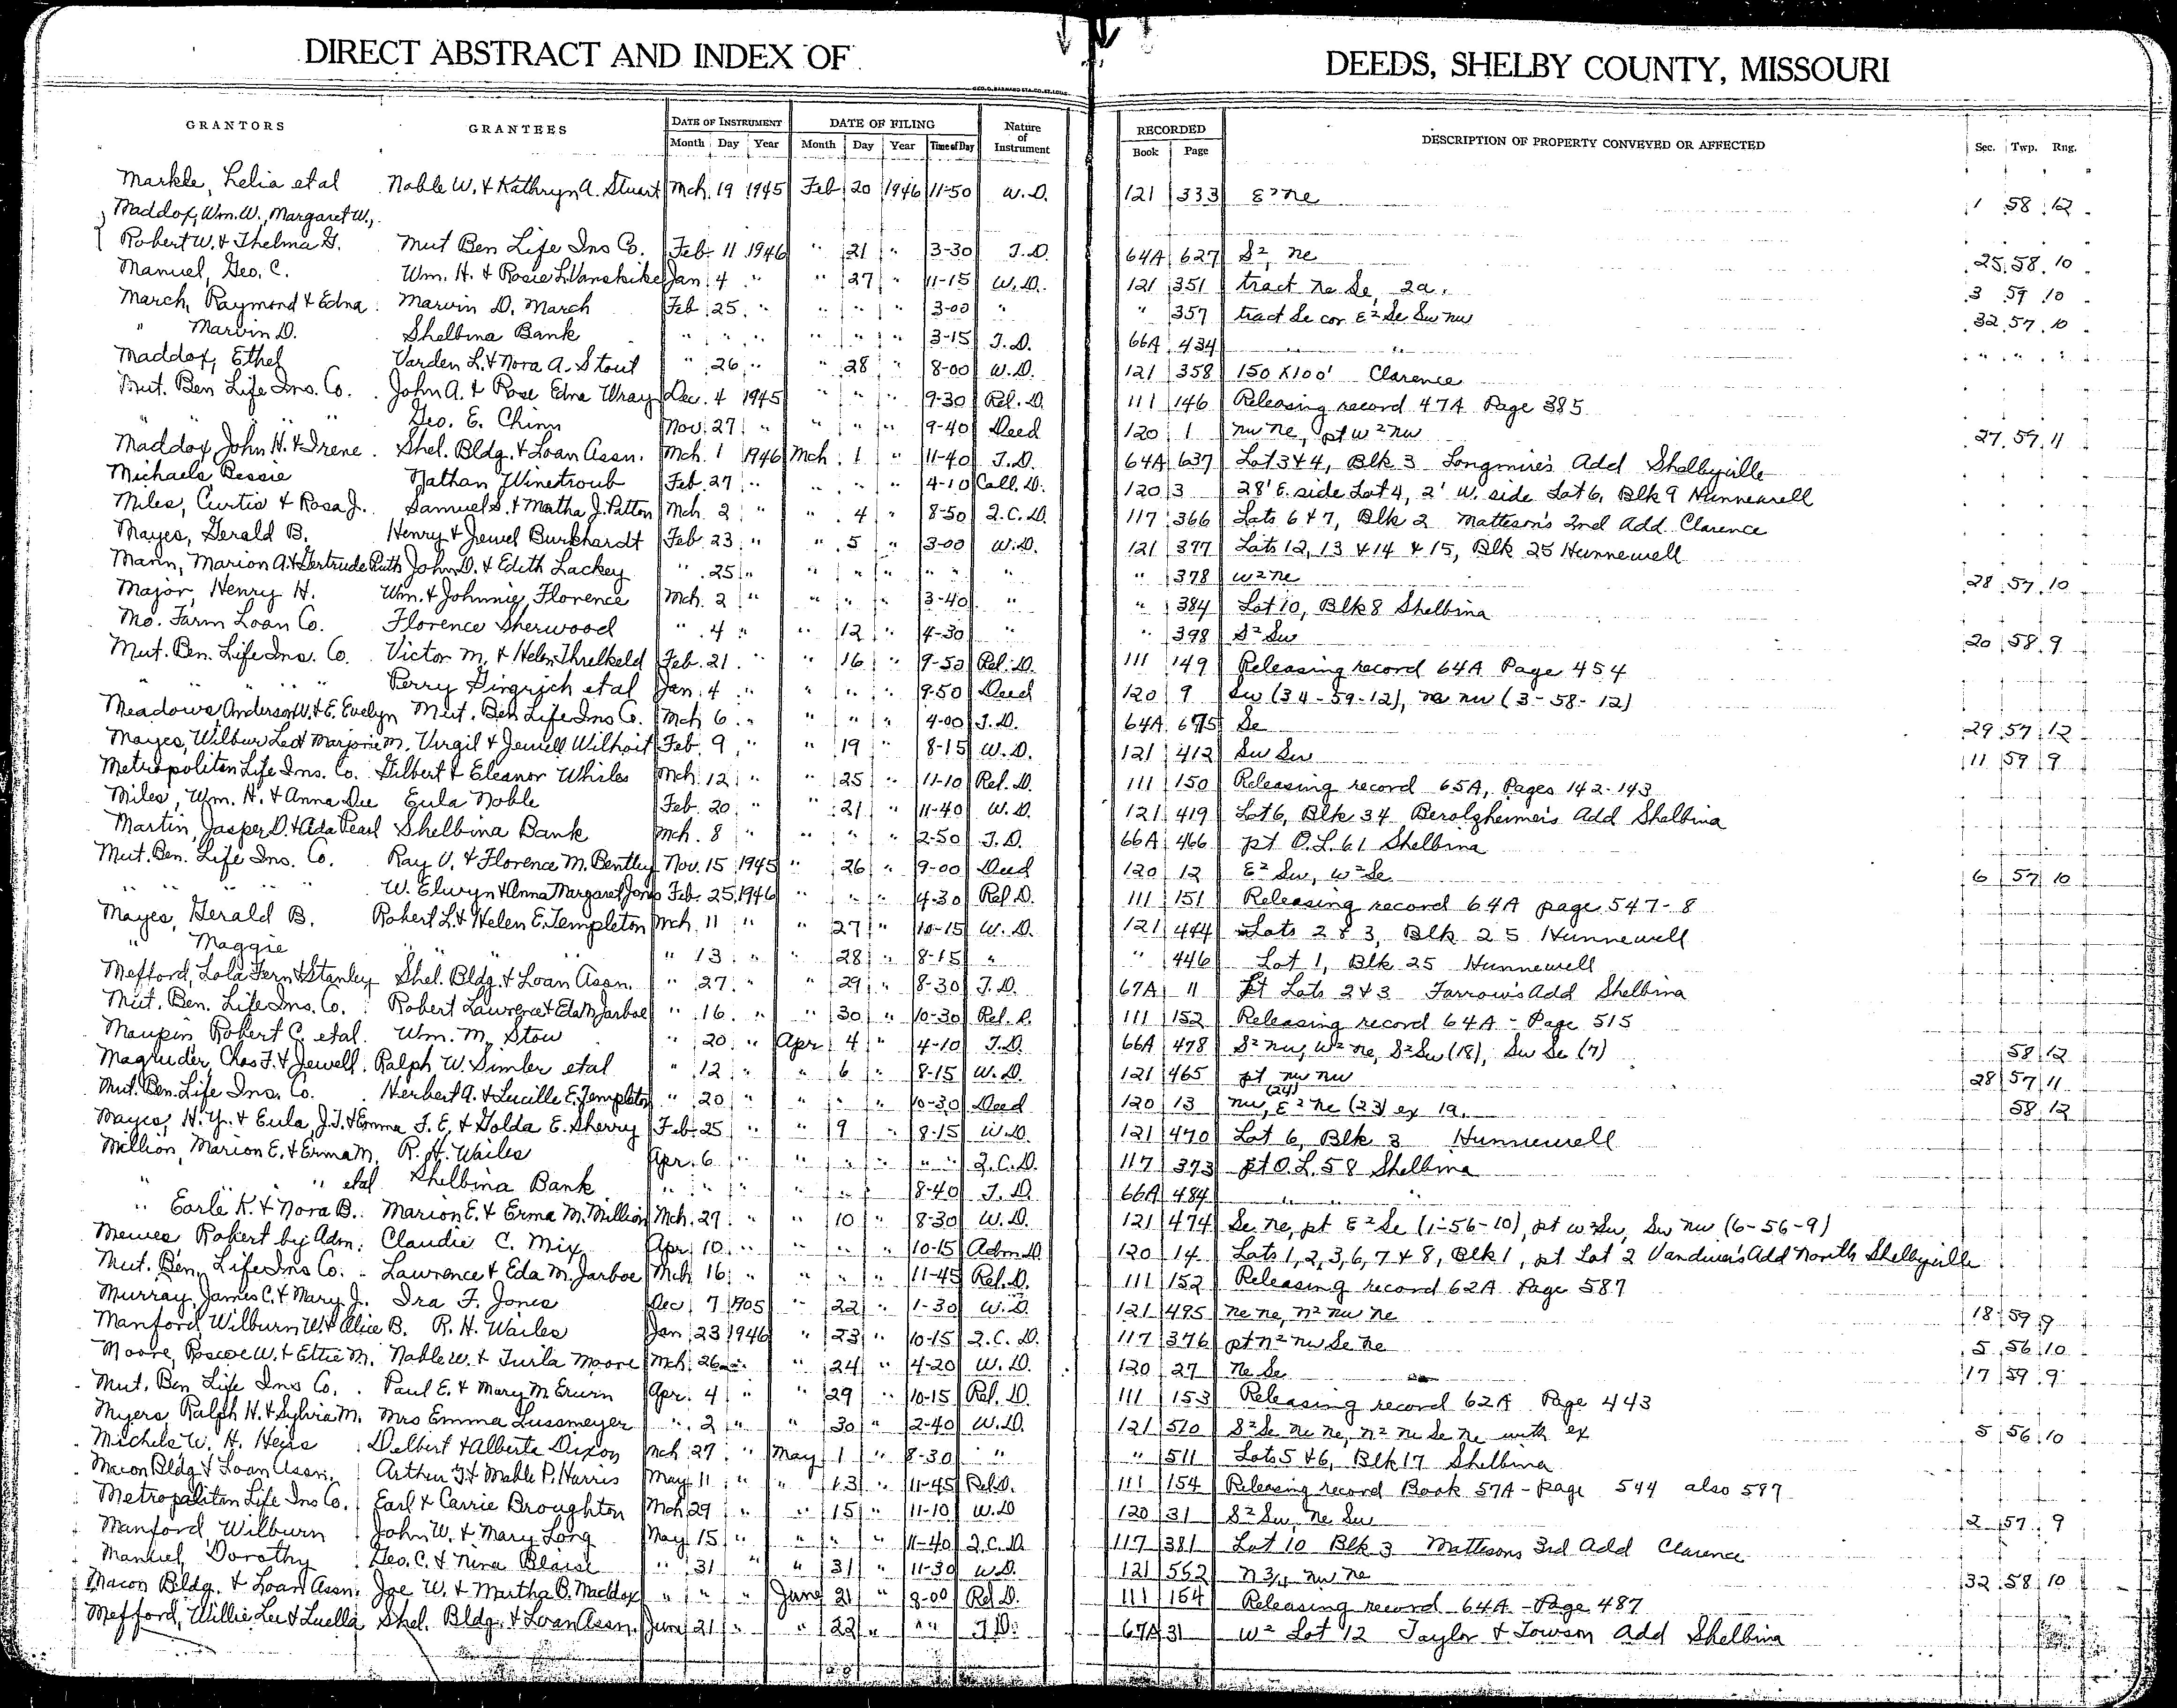 DIRECT ABSTRACT AND INDEX OF DEEDS, SHELBY COUNTY, MISSOURI
GRANTORS GRANTEES DATE OF INSTRUMENT DATE OF FILING Nature of Instrument RECORDED DESCRIPTION OF PROPERTY CONVEYED OR AFFECTED Sec. Twp. Rng.
Month Day Year Month Day Year Time of Day Book Page
Markle, Lelia et al Noble W. & Kathryn A. Stuart Mch. 19 1945 Feb 20 1946 11-50 W.D. 121 333 E² Ne 1 58 12
Maddox, Wm. W., Margaret W.,
Robert W. & Thelma G. Mut Ben Life Ins Co. Feb. 11 1946 " 21 " 3-30 T.D. 64A 627 S², Ne 25 58 10
Manuel, Geo. C. Wm. H. & Rosie L. Vanskike Jan 4 " " 27 " 11-15 W.D. 121 351 tract Ne Se, 2a. 3 59 10
March, Raymond & Edna Marvin D. March Feb 25 " " " " 3-00 " " 357 tract Se cor E² Se Sw Nw 32 57 10
" Marvin D. Shelbina Bank " " " " " " 3-15 T.D. 66A 434 " " " " "
Maddox, Ethel Varden L. & Nora A. Stout " 26 " " 28 " 8-00 W.D. 121 358 150 X 100' Clarence
Mut. Ben Life Ins. Co. John A. & Rose Edna Wray Dec. 4 1945 " " " 9-30 Rel. D. 111 146 Releasing record 47A Page 385
" " " " Geo. E. Chinn Nov. 27 " " " " 9-40 Deed 120 1 Nw Ne, pt W² Nw 27 57 11
Maddox, John H. & Irene Shel. Bldg. & Loan Assn. Mch. 1 1946 Mch. 1 " 11-40 T.D. 64A 637 Lot 3 & 4, Blk 3 Longmire's Add Shelbyville
Michaels Bessie Nathan Winetroub Feb. 27 " " " " 4-10 Coll. D. 120 3 28' E. side Lot 4, 2' W. side Lot 6, Blk 9 Hunnewell
Miles, Curtis & Rosa J. Samuel S. & Martha J. Patton Mch. 2 " " 4 " 8-50 Q.C.D. 117 366 Lots 6 & 7, Blk 2 Matteson's 2nd Add Clarence
Mayes, Gerald B. Henry & Jewel Burkhardt Feb 23 " " 5 " 3-00 W.D. 121 377 Lots 12, 13 & 14 & 15, Blk 25 Hunnewell
Mann, Marion A. & Gertrude Ruth John D. & Edith Lackey " 25 " " " " " " " " 378 W² Ne 28 57 10
Major, Henry H. Wm. & Johnnie Florence Mch. 2 " " " " 3-40 " " 384 Lot 10, Blk 8 Shelbina
Mo. Farm Loan Co. Florence Sherwood " 4 " " 12 " 4-30 " " 398 S² Sw 20 58 9
Mut. Ben. Life Ins. Co. Victor M. & Helen Threlkeld Feb. 21 " " 16 " 9-50 Rel. D. 111 149 Releasing record 64A Page 454
" " " " Perry Gingrich et al Jan 4 " " " " 9-50 Deed 120 9 Sw (34-59-12), Ne Nw (3-58-12)
Meadows Anderson W. & E. Evelyn Mut. Ben Life Ins Co. Mch 6 " " " " 4-00 T.D. 64A 675 Se 29 57 12
Mayes, Wilbur Leo & Marjorie M. Virgil & Jewell Wilhoit Feb. 9 " " 19 " 8-15 W.D. 121 412 Sw Sw 11 59 9
Metropolitan Life Ins. Co. Gilbert & Eleanor Whiles Mch. 12 " " 25 " 11-10 Rel. D. 111 150 Releasing record 65A, Pages 142-143
Miles, Wm. H. & Anna Dee Eula Noble Feb. 20 " " 21 " 11-40 W.D. 121 419 Lot 6, Blk 34 Berolzheimer's Add Shelbina
Martin, Jasper D. & Ada Pearl Shelbina Bank Mch. 8 " " " " 2-50 T.D. 66A 466 pt O.L. 61 Shelbina
Mut. Ben. Life Ins. Co. Ray V. & Florence M. Bentley Nov. 15 1945 " 26 " 9-00 Deed 120 12 E² Sw, W² Se 6 57 10
" " " " W. Elwyn & Anna Margaret Jones Feb. 25 1946 " " " 4-30 Rel D. 111 151 Releasing record 64A page 547-8
Mayes, Gerald B. Robert L. & Helen E. Templeton Mch. 11 " " 27 " 10-15 W.D. 121 444 Lots 2 & 3, Blk 25 Hunnewell
" Maggie " " " " 13 " " 28 " 8-15 " " 446 Lot 1, Blk 25 Hunnewell
Mefford, Lola Fern & Stanley Shel. Bldg. & Loan Assn. " 27 " " 29 " 8-30 T.D. 67A 11 Pt Lots 2 & 3 Farrow's Add Shelbina
Mut. Ben. Life Ins. Co. Robert Lawrence & Eda M Jarboe " 16 " " 30 " 10-30 Rel. D. 111 152 Releasing record 64A - Page 515
Maupin, Robert C. et al. Wm. M. Stow " 20 " Apr 4 " 4-10 T.D. 66A 478 S² Nw, W² Ne, S² Sw (18), Sw Se (7) 58 12
Magruder, Chas F. & Jewell Ralph W. Simler et al " 12 " " 6 " 8-15 W.D. 121 465 pt Nw Nw 28 57 11
Mut. Ben. Life Ins. Co. Herbert A. & Lucille E. Templeton " 20 " " " " 10-30 Deed 120 13 Nw (24), E² Ne (23) ex 1a. 58 12
Mayes, H. Y. & Eula, J.T. & Emma F. E. & Golda E. Sherry Feb. 25 " " 9 " 8-15 W.D. 121 470 Lot 6, Blk 3 Hunnewell
Million, Marion E. & Erma M. R. H. Wailes Apr. 6 " " " " " " Q.C.D. 117 373 pt O.L. 58 Shelbina
" " " et al Shelbina Bank " " " " " " 8-40 T.D. 66A 484 " " "
" Earle K. & Nora B. Marion E. & Erma M. Million Mch. 27 " " 10 " 8-30 W.D. 121 474 Se Ne, pt E² Se (1-56-10), pt W² Sw, Sw Nw (6-56-9)
Mewes Robert by Adm. Claudie C. Mix Apr. 10 " " " " 10-15 Adm D. 120 14 Lots 1, 2, 3, 6, 7 & 8, Blk 1, pt Lot 2 Vandiver's Add North Shelbyville
Mut. Ben. Life Ins Co. Lawrence & Eda M. Jarboe Mch 16 " " " " 11-45 Rel. D. 111 152 Releasing record 62A Page 587
Murray, James C. & Mary J. Ira F. Jones Dec 7 1905 " 22 " 1-30 W.D. 121 495 Ne Ne, N² Nw Ne 18 59 9
Manford, Wilburn W. & Alice B. R. H. Wailes Jan 23 1946 " 23 " 10-15 Q.C.D. 117 376 pt N² Nw Se Ne 5 56 10
Moore, Roscoe W. & Ettie M. Noble W. & Turla Moore Mch. 26 " " 24 " 4-20 W.D. 120 27 Ne Se 17 59 9
Mut. Ben Life Ins Co. Paul E. & Mary M Erwin Apr. 4 " " 29 " 10-15 Rel. D. 111 153 Releasing record 62A Page 443
Myers, Ralph H. & Sylvia M. Mrs Emma Lussmeyer " 2 " " 30 " 2-40 W.D. 121 510 S² Se Ne Ne, N² Ne Se Ne with ex 5 56 10
Michels W. H. Heirs Delbert & Alberta Dixon Mch 27 " May 1 " 8-30 " " 511 Lots 5 & 6, Blk 17 Shelbina
Macon Bldg & Loan Assn. Arthur T. & Mable P. Harris May 11 " " 13 " 11-45 Rel D. 111 154 Releasing record Book 57A - page 544 also 597
Metropolitan Life Ins Co. Earl & Carrie Broughton Mch 29 " " 15 " 11-10 W.D 120 31 S² Sw, Ne Sw 2 57 9
Manford, Wilburn John W. & Mary Long May 15 " " " " 11-40 Q.C.D. 117 381 Lot 10 Blk 3 Mattesons 3rd Add Clarence
Manuel, Dorothy Geo. C. & Nina Blaise " 31 " " 31 " 11-30 W.D. 121 552 N 3/4 Nw Ne 32 58 10
Macon Bldg. & Loan Assn. Joe W. & Martha B. Maddox " " " June 21 " 8-00 Rel D. 111 154 Releasing record 64A - Page 487
Mefford, Willie Lee & Luella Shel. Bldg. & Loan Assn. June 21 " " 22 " " " T.D. 67A 31 W² Lot 12 Taylor & Towson Add Shelbina